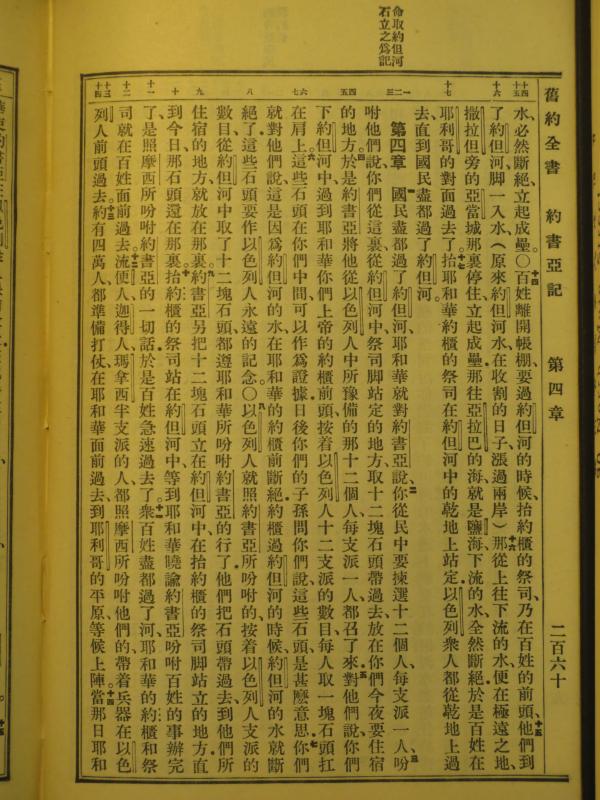 命取約但河
石立之爲記
舊約全書　約書亞記　第四章　二百六十
水、必然斷絕、立起成壘。○百姓離開帳棚、要過約但河的時候、抬約櫃的祭司、乃在百姓的前頭、他們到
了約但河、脚一入水、（原來約但河水、在收割的日子、漲過兩岸）那從上往下流的水、便在極遠之地、
撒拉但旁的亞當城那裏停住、立起成壘、那往亞拉巴的海、就是鹽海、下流的水、全然斷絕、於是百姓在
耶利哥的對面過去了。抬耶和華約櫃的祭司、在約但河中的乾地上站定、以色列衆人都從乾地上過
去、直到國民盡都過了約但河。
第四章　國民盡都過了約但河、耶和華就對約書亞說、你從民中要揀選十二個人、每支派一人、吩
咐他們說、你們從這裏、從約但河中、祭司脚站定的地方、取十二塊石頭帶過去、放在你們今夜要住宿
的地方。於是約書亞將他從以色列人中所豫備的那十二個人、每支派一人、都召了來、對他們說、你們
下約但河中、過到耶和華你們上帝的約櫃前頭、按着以色列人十二支派的數目、每人取一塊石頭扛
在肩上。這些石頭在你們中間、可以作爲證據、日後你們的子孫問你們說、這些石頭是甚麼意思、你們
就對他們說、這是因爲約但河的水、在耶和華的約櫃前斷絕、約櫃過約但河的時候、約但河的水就斷
絕了、這些石頭要作以色列人永遠的記念。○以色列人就照約書亞所吩咐的、按着以色列人支派的
數目、從約但河中取了十二塊石頭、都遵耶和華所吩咐約書亞的行了、他們把石頭帶過去、到他們所
住宿的地方、就放在那裏。約書亞另把十二塊石頭立在約但河中、在抬約櫃的祭司脚站立的地方、直
到今日、那石頭還在那裏。抬約櫃的祭司站在約但河中、等到耶和華曉諭約書亞吩咐百姓的事辦完
了、是照摩西所吩咐約書亞的一切話、於是百姓急速過去了。衆百姓盡都過了河、耶和華的約櫃、和祭
司、就在百姓面前過去。流便人、迦得人、瑪拿西半支派的人、都照摩西所吩咐他們的、帶着兵器在以色
列人前頭過去。約有四萬人、都準備打仗、在耶和華面前過去、到耶利哥的平原、等候上陣。當那日、耶和